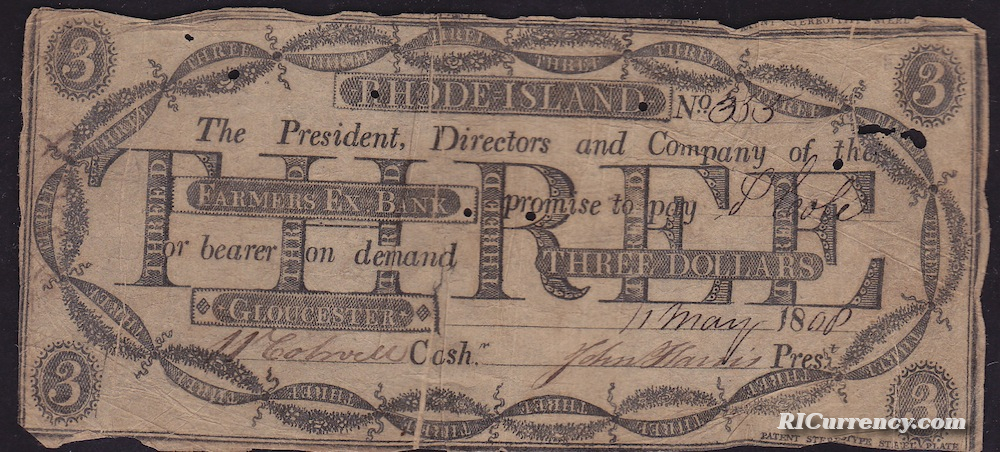 3 THREE THREE THREE THREE 3
RHODE-ISLAND No. 353
The President, Directors and Company of the
THREE
FARMERS EX. BANK promise to pay
or bearer on demand THREE DOLLARS
GLOUCESTER 11 May 1808
Wm Colwell Cash.r John Harris Pres.t
3 THREE THREE THREE 3
PATENT STEREOTYPE STEEL PLATE
RICurrency.com